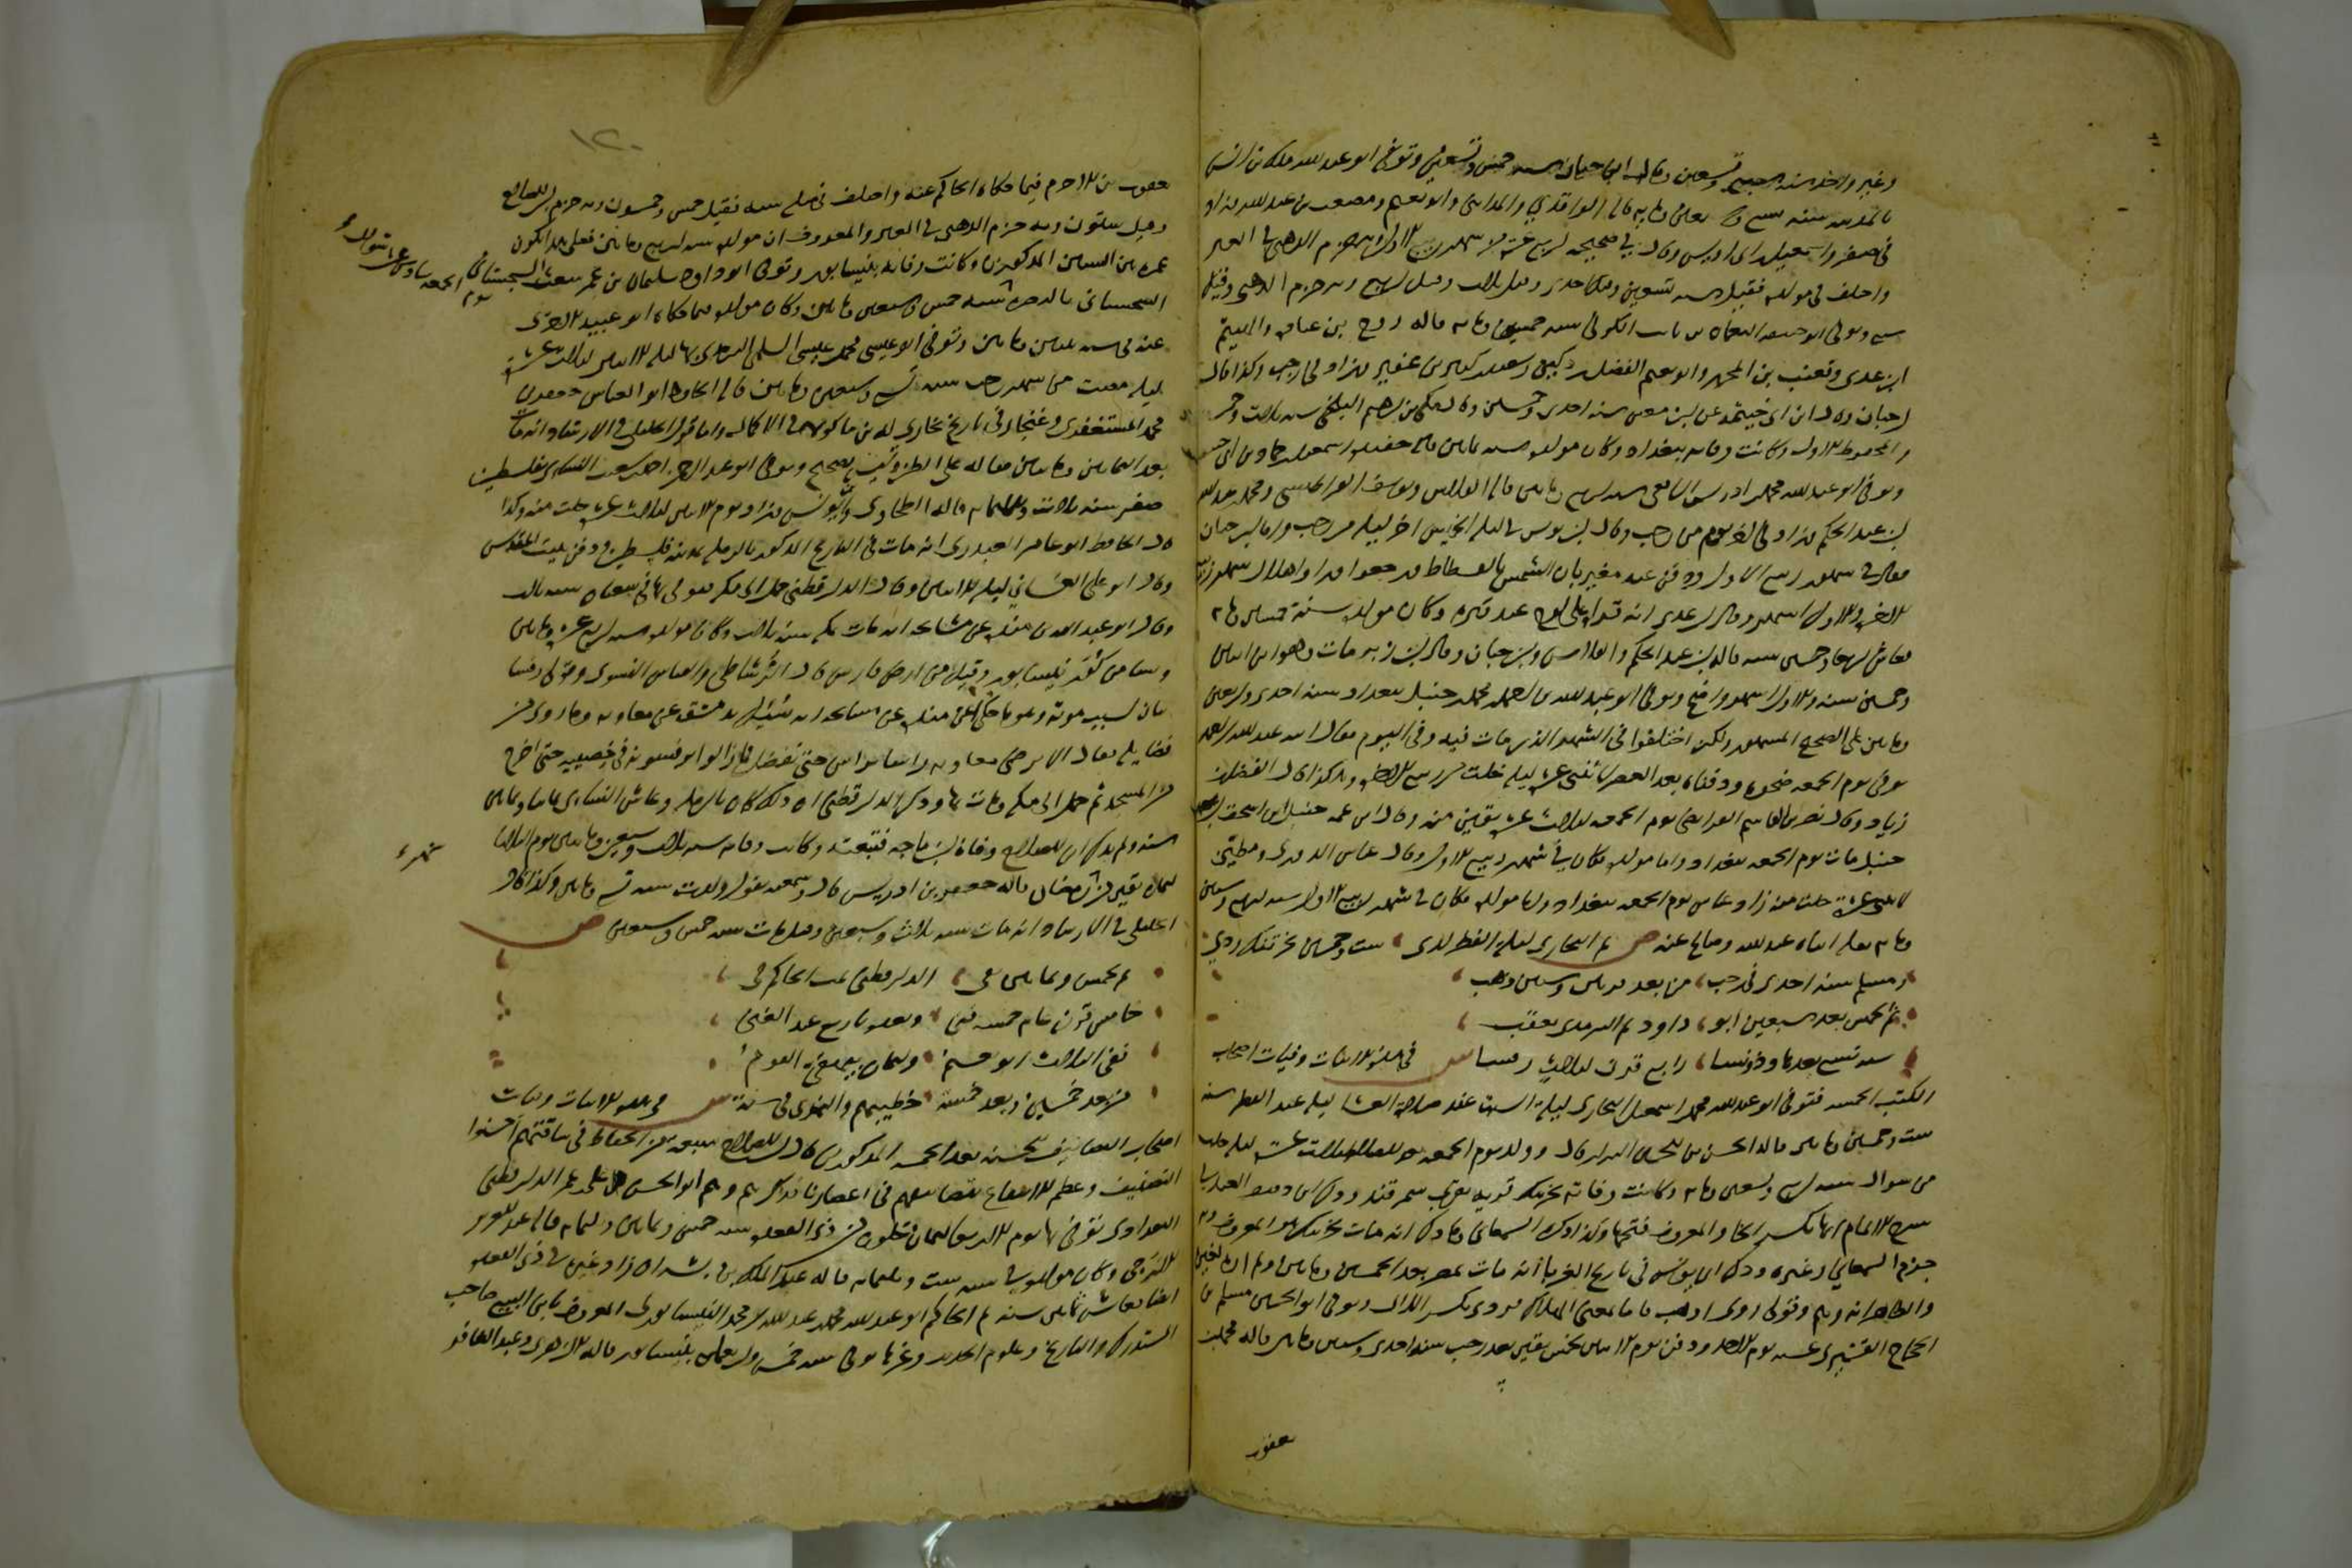 وغير واحد سنة سبع وتسعين وقال ابن حبان سنة خمس وتسعين وتوفي ابو عبد الله ملك بن انس
بالمدينة سنة تسع وسبعين ومايه قاله الواقدي والمدايني وابو نعيم ومصعب بن عبد الله وزاد
في صفر واسمعيل بن ابي اويس وقال في صبيحة اربع عشرة من شهر ربيع الاول وبه جزم الذهبي في العبر
واختلف في مولده فقيل سنة تسعين وقيل احدى وقيل ثلاث وقيل اربع وبه جزم الذهبي وقيل
سبع وتوفي ابو حنيفة النعمان بن ثابت الكوفي سنة خمسين ومايه قاله روح بن عبادة والهيثم
ابن عدي وقعنب بن المحرر وابو نعيم الفضل بن دكين وسعيد بن كثير بن عفير وزاد في رجب وكذا قال
ابن حبان وقال ابن ابي خيثمة عن ابن معين سنة احدى وخمسين وقال مكي بن ابرهيم البلخي سنة ثلاث وخمسين
والمحفوظ الاول وكانت وفاته ببغداد وكان مولده سنة ثمانين قاله حفيده اسمعيل بن حماد بن ابي حنيفة
وتوفي ابو عبد الله محمد بن ادريس الشافعي سنة اربع ومايتين قاله الفلاس ويوسف القراطيسي ومحمد بن عبد الله
ابن عبد الحكم وزاد في اخر يوم من رجب وقال ابن يونس في ليلة الخميس اخر ليلة من رجب واما ابن حبان
فقال في شهر ربيع الاول ودفن عند مغيربان الشمس بالفسطاط ورجعوا فراوا هلال شهر ربيع
الاخر والاول اشهر وقال ابن عدي انه قرا على لوح عند قبره وكان مولده سنة خمسين ومايه
فعاش اربعا وخمسين سنة قاله ابن عبد الحكم والفلاس وابن حبان وقال ابن زبر مات وهو ابن اثنين
وخمسين سنة والاول اشهر واصح وتوفي ابو عبد الله احمد بن محمد بن حنبل ببغداد سنة احدى واربعين
ومايتين على الصحيح المشهور ولكن اختلفوا في الشهر الذي مات فيه وفي اليوم فقال ابنه عبد الله بن احمد
توفي يوم الجمعه ضحوة ودفناه بعد العصر لاثنتي عشرة ليلة خلت من ربيع الاخر وهكذا قال الفضل بن
زياد وقال نصر بن القاسم الفرايضي يوم الجمعه لثلاث عشرة بقين منه وقال ابن عمه حنبل بن اسحق بن
حنبل مات يوم الجمعه ببغداد واما مولده فكان في شهر ربيع الاول وقال عباس الدوري ومطين
لاثنتي عشرة خلت منه زاد عباس يوم الجمعه ببغداد واما مولده فكان في شهر ربيع الاول سنة اربع وستين
ومايه نقله ابناه عبد الله وصالح عنه ص ثم البخاري ليلة الفطر لدى ست وخمسين بخرتنك ردي
ومسلم سنة احدى في رجب من بعد قرنين وستين ذهب
ثم لخمس بعد سبعين ابو داود ثم الترمذي يعقب
سنة تسع بعدها وذو نسا رابع قرن لثلاث رفسا ش في هذه الابيات وفيات اصحاب
الكتب الخمسه فتوفي ابو عبد الله محمد بن اسمعيل البخاري ليلة السبت عند صلاة العشا ليلة عيد الفطر سنة
ست وخمسين ومايتين قاله الحسن بن الحسين البزاز قال وولد يوم الجمعه بعد الصلاة لثلاث عشرة ليلة خلت
من شوال سنة اربع وتسعين ومايه وكانت وفاته بخرتنك قرية بقرب سمرقند وذكر ابن دقيق العيد في
شرح الالمام انها بكسر الخا والمعروف فتحها وكذا ذكره السمعاني وما ذكر انه مات بخرتنك هو المعروف وبه
جزم السمعاني وغيره وذكر ابن يونس في تاريخ الغربا انه مات بمصر بعد الخمسين ومايتين ولم اره لغيره
والظاهر انه وهم وقولي ردي اي ذهب بالفاء بمعنى الهلاك ردي بكسر الدال وتوفي ابو الحسين مسلم بن
الحجاج القشيري عشية يوم الاحد ودفن يوم الاثنين لخمس بقين من رجب سنة احدى وستين ومايتين قاله محمد بن
يعقوب
١٢٠
يعقوب بن الاخرم فيما حكاه الحاكم عنه واختلف في مبلغ سنه فقيل خمس وخمسون وبه جزم ابن الصلاح
وقيل ستون وبه جزم الذهبي في العبر والمعروف ان مولده سنة اربع ومايتين فعلى هذا يكون
عمره بين السنين المذكورين وكانت وفاته بنيسابور وتوفي ابو داود سليمان بن الاشعث السجستاني
السجستاني بالبصرة سنة خمس وسبعين ومايتين وكان مولده فيما حكاه ابو عبيد الاجري
عنه في سنة اثنين ومايتين وتوفي ابو عيسى محمد بن عيسى السلمي الترمذي بها ليلة الاثنين لثلاث عشرة
ليلة مضت من شهر رجب سنة تسع وسبعين ومايتين قاله الحافظ ابو العباس جعفر بن
محمد المستغفري وغنجار في تاريخ بخارى وابن ماكولا في الاكمال واما قول الخليلي في الارشاد انه مات
بعد الثمانين ومايتين فليس بصحيح وتوفي ابو عبد الرحمن احمد بن شعيب النسائي بفلسطين
صفر سنة ثلاث وثلثمايه قاله الطحاوي وابن يونس وزاد يوم الاثنين لثلاث عشرة خلت منه وكذا
قال الحافظ ابو عامر العبدري انه مات في التاريخ المذكور بالرملة مدينة فلسطين ودفن ببيت المقدس
وقال ابو علي الغساني ليلة الاثنين وقال الدارقطني حمل الى مكة فتوفي بها في شعبان سنة ثلاث
وقال ابو عبد الله بن منده عن مشايخه انه مات بمكة سنة ثلاث وكان مولده سنة اربع عشرة ومايتين
ونسا من كور نيسابور وقيل من ارض فارس قال الرشاطي والقياس النسوي وقولي رفسا
بيان لسبب موته وهو ما حكى ابن منده عن مشايخه انه سئل بدمشق عن معاويه وما روي من
فضايله فقال الا يرضى معاويه راسا براس حتى يفضل فما زالوا يرفسونه في خصييه حتى اخرج
من المسجد ثم حمل الى مكة ومات بها وذكر الدارقطني ان ذلك كان بالرملة وعاش النسائي ثمانيا وثمانين
سنة ولم يذكر ابن الصلاح وفاة ابن ماجه فتبعته وكانت وفاته سنة ثلاث وسبعين ومايتين يوم الثلاثا
لثمان بقين من رمضان قاله جعفر بن ادريس قال وسمعته يقول ولدت سنة تسع ومايتين وكذا قال
الخليلي في الارشاد انه مات سنة ثلاث وسبعين وقيل مات سنة خمس وسبعين ص
ثم لخمس وثمانين تفي الدارقطني ثمت الحاكم في
خامس قرن عام خمسة فني وبعده باربع عبد الغني
ففي الثلاث ابو نعيم ولثمان بيهقي القوم
من بعد خمسين وبعد خمسة خطيبهم والنمري في سنة ش في هذه الابيات وفيات
اصحاب التصانيف الحسنه بعد الخمسة المذكورين قال ابن الصلاح سبعة من الحفاظ في ساقتهم احسنوا
التصنيف وعظم الانتفاع بتصانيفهم في اعصارنا فذكرهم وهم ابو الحسن علي بن عمر الدارقطني
البغدادي توفي بها يوم الاربعا لثمان خلون من ذي القعدة سنة خمس وثمانين وثلثمايه قاله عبد العزيز
الازجي وكان مولده في سنة ست وثلثمايه قاله عبد الملك بن بشران زاد غيره في ذي القعدة
ايضا فعاش ثمانين سنة ثم الحاكم ابو عبد الله محمد بن عبد الله بن محمد النيسابوري المعروف بابن البيع صاحب
المستدرك والتاريخ وعلوم الحديث وغيرها توفي سنة خمس واربعمايه بنيسابور قاله الازهري وعبد الغافر